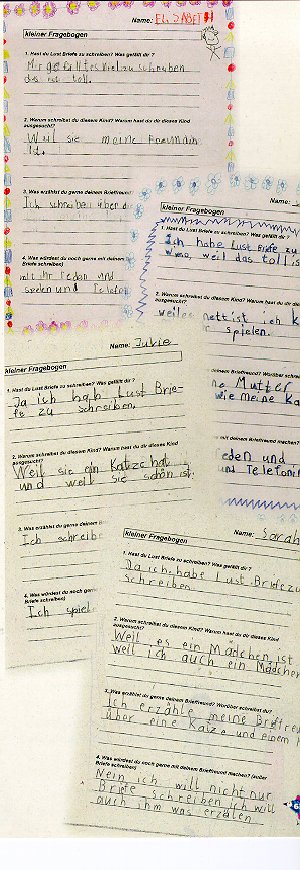 Name: ELISABET
kleiner Fragebogen
1. Hast du Lust Briefe zu schreiben? Was gefällt dir ?
Mir gefällt es viel zu schreiben
das ist toll.
2. Warum schreibst du diesem Kind? Warum hast du dir dieses
ausgesucht?
Weil sie meine Freundin
ist.
3. Was erzählst du gerne deinem Brieffreund
Ich schreibe über
4. Was würdest du noch gerne mit deinem
Briefe schreiben)
mit ihr reden und
spielen und
Name:
kleiner Fragebogen
1. Hast du Lust Briefe zu schreiben? Was gefällt
Ich habe Lust Briefe zu
weil das toll is
2. Warum schreibst du diesem Kind? Warum hast du dir
ausgesucht?
weil es nett ist ich k
spielen.
deinem Brieffreund? Worüber schreibst
ne Mutter
wie meine Ka
mit deinem Brieffreund machen?
eden und
und Telefoni
Name: Julie
kleiner Fragebogen
1. Hast du Lust Briefe zu schreiben? Was gefällt dir?
Ja ich hab Lust Brie-
fe zu schreiben.
2. Warum schreibst du diesem Kind? Warum hast du dir dieses Kind
ausgesucht?
Weil sie ain Katze hat
und weil sie schön ist.
3. Was erzählst du gerne deinem B
Ich schreibe
4. Was würdest du noch gern
Briefe schreiben)
Ich spiel
Name: Sarah
kleiner Fragebogen
1. Hast du Lust Briefe zu schreiben? Was gefällt dir ?
Ja ich habe Lust Briefe zu
schreiben.
2. Warum schreibst du diesem Kind? Warum hast du dir dieses Kind
ausgesucht?
Weil es ein Mädchen ist
weil ich auch ein Mädchen
3. Was erzählst du gerne deinem Brieffreund? Worüber schreibst du?
Ich erzähle meine Brieffreu
über eine Kaize und einem
4. Was würdest du noch gerne mit deinem Brieffreund machen? (außer
Briefe schreiben)
Nein ich will nicht nur
Briefe schreiben ich will
auch ihm was erzälen